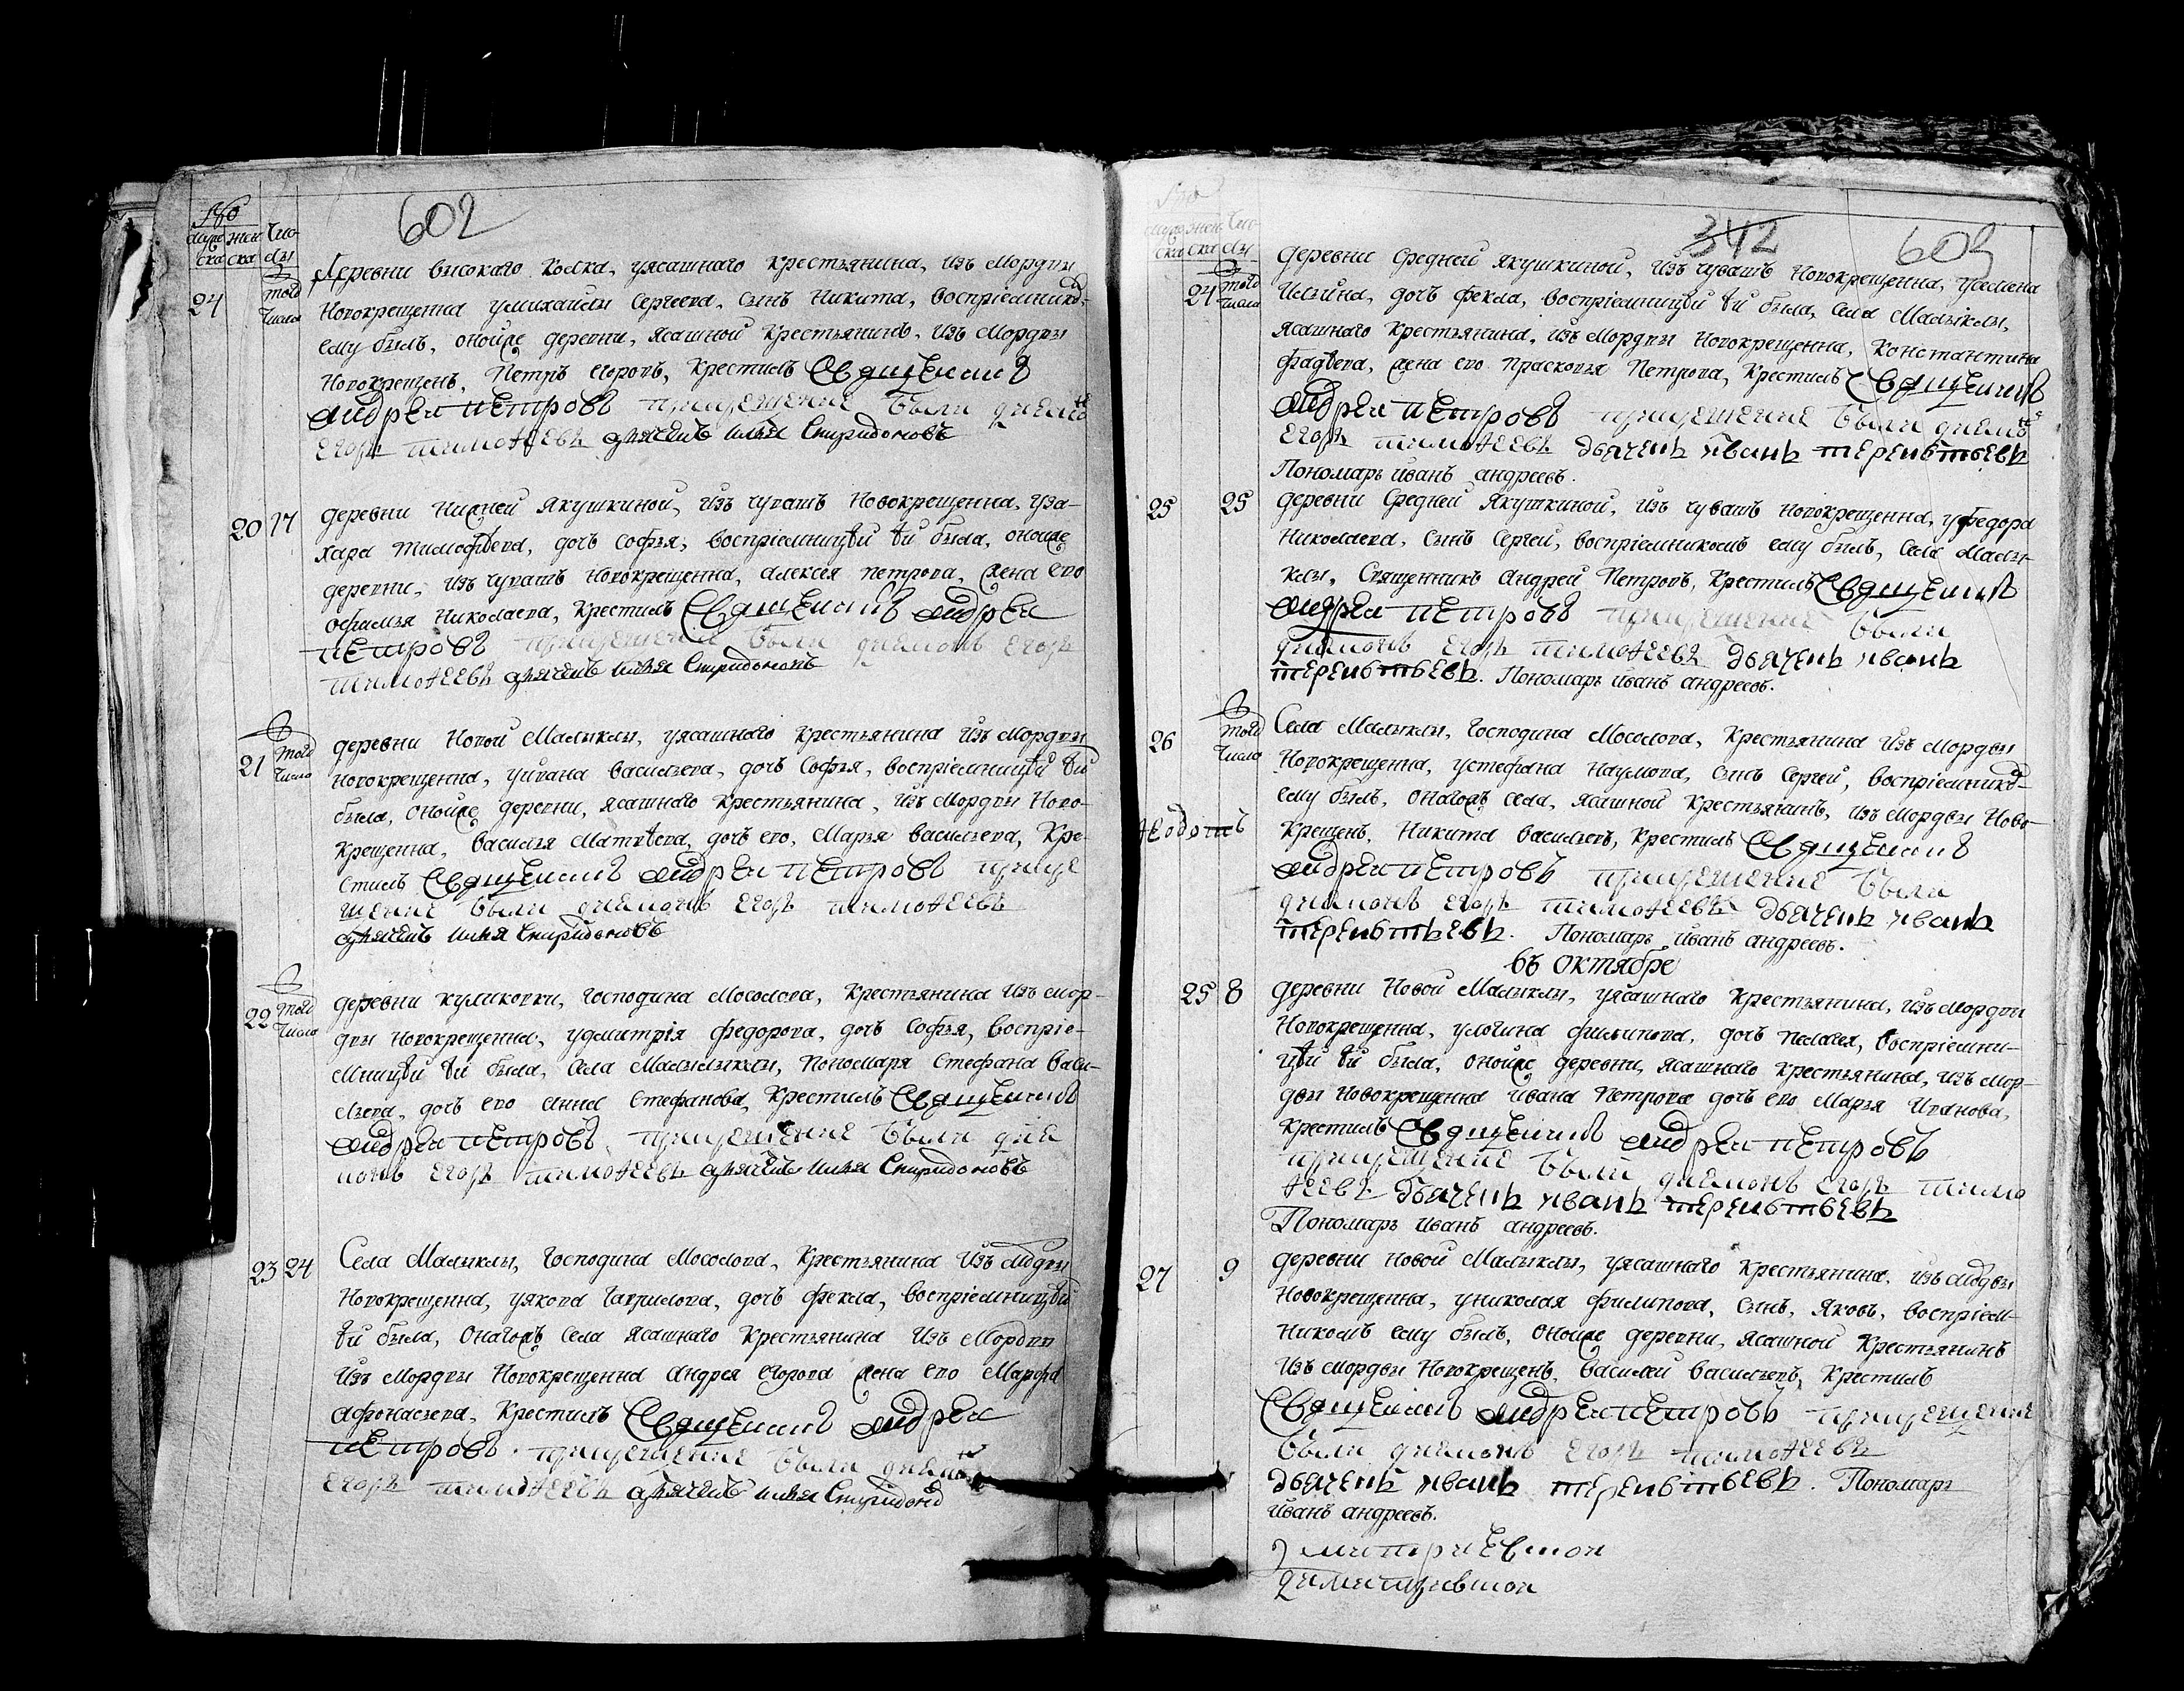 №
муже
ска
жен
ска
Чис-
лы
602
24
того
числа
деревни высокаго Колка, уясашнаго крестьянина, изъ мордвы
Новокрещенна умихайлы Сергеева, сынъ Никита, воспріемникомъ
ему былъ, оноиже деревни, ясашной крестьянинъ, изъ мордвы
Новокрещенъ, Петръ егоровъ, Крестилъ Священникъ
андреи петровъ прикрещение были диаконъ
егоръ тимофеевъ дьячекъ илья Спиридоновъ
20 17
деревни Нижней Якушкиной, изъ чувашъ Новокрещенна, уза-
хара тимофѣева, дочь софья, воспріемницѣй ѣй была, оноиже
деревни, изъ чувашъ новокрещенна, алексея петрова, жена ево
офимья Николаева, крестилъ Священникъ андреи
петровъ прикрещение были диаконъ егоръ
тимофеевъ дьячекъ илья Спиридоновъ
21
того
числа
деревни Новой Малыклы, уясашнаго крестьянина изъ мордвы
новокрещенна, уивана васильева, дочь Софья, воспріемницѣй ѣй
была, оноиже деревни, ясашнаго крестьянина, изъ мордвы Ново-
крещенна, василья Матвѣева, дочь ево, Марья васильева, Кре-
стилъ Священникъ андреи петровъ прикре
щение были диаконъ егоръ тимофеевъ
дьячекъ илья Спиридоновъ
22
того
числа
деревни куликовки, Господина Мосолова, крестьянина изъ мор-
двы новокрещенна, удмитрія федорова, дочь Софья, воспріе-
мницѣй ѣй была, села Малыклы, пономаря Стефана васи-
льева, дочь ево анна Стефанова, Крестилъ Священникъ
андреи петровъ прикрещение были диа
конъ егоръ тимофеевъ дьячекъ илья Спиридоновъ
23 24
Села Малыклы, Господина Мосолова, Крестьянина изъ модвы
Новокрещенна, уякова Гаврилова, дочь фекла, воспріемницѣй
ѣй была, онагожъ села ясашнаго крестьянина изъ Мордвы
изъ мордвы Новокрещенна андрея егорова жена ево Марфа
афонасьева, Крестилъ Священникъ андреи
петровъ прикрещение были диаконъ
егоръ тимофеевъ дьячекъ илья Спиридоновъ
муже
ска
жен
ска
Чис-
лы
342
603
24
того
числа
деревни Средней якушкиной, изъ чувашъ новокрещенна, усемена
Ильина, дочь фекла, воспріемницѣй ѣй была, села Малыклы,
ясашнаго крестьянина, изъ мордвы новокрещенна, Константина
фадѣева, жена ево Прасковья Петрова, крестилъ Священникъ
андреи петровъ прикрещение были диаконъ
егоръ тимофеевъ дьяченъ иванъ терентьевъ
Пономарь иванъ андреевъ.
25 25
деревни Средней Якушкиной, изъ чувашъ новокрещенна, уфедора
Николаева, сынъ Сергей, воспріемникомъ ему былъ, села Малы-
клы, Священникъ андрей Петровъ, крестилъ Священникъ
андреи петровъ прикрещение были
диаконъ егоръ тимофеевъ дьяченъ иванъ
терентьевъ. Пономарь иванъ андреевъ.
26
того
числа
Села Малыклы, Господина Мосолова, Крестьянина изъ мордвы
Новокрещенна, устефана Наумова, сынъ Сергей, воспріемникомъ
ему былъ, онагожъ села, ясашной крестьянинъ, изъ мордвы Ново-
крещенъ, Никита васильевъ, крестилъ Священникъ
андреи петровъ прикрещение были
диаконъ егоръ тимофеевъ дьяченъ иванъ
терентьевъ. Пономарь иванъ андреевъ.
въ октябре
25 8
деревни Новой Малыклы, уясашнаго крестьянина, изъ мордвы
Новокрещенна, улогина филипова, дочь пелагея, воспріемни-
цѣй ѣй была, оноиже деревни, ясашнаго крестьянина, изъ мор-
двы новокрещенна ивана петрова дочь ево марья Иванова,
крестилъ Священникъ андреи петровъ
прикрещение были диаконъ егоръ тимо
феевъ дьяченъ иванъ терентьевъ
Пономарь иванъ андреевъ.
27 9
деревни новой Малыклы, уясашнаго крестьянина, изъ модвы
новокрещенна, уНиколая филипова, сынъ, Яковъ, воспріем-
никомъ ему былъ, оноиже деревни, ясашной крестьянинъ
изъ мордвы новокрещенъ, василей васильевъ, крестилъ
Священникъ андреи петровъ прикрещение
были диаконъ егоръ тимофеевъ
дьяченъ иванъ терентьевъ. Пономарь
иванъ андреевъ.